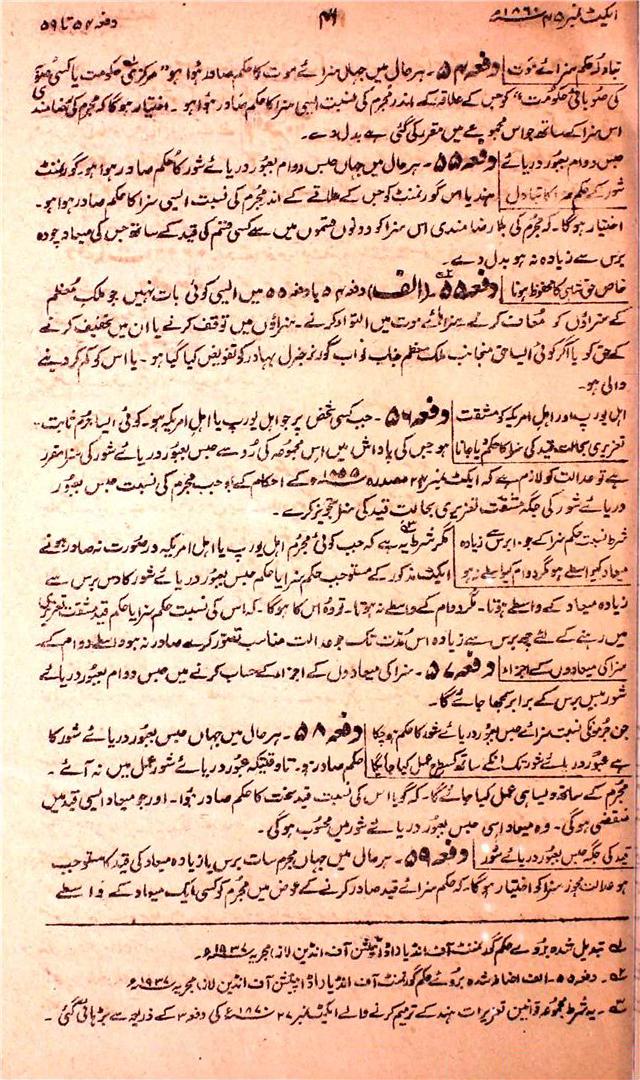 ایکٹ نمبر ۴۵ ۱۸۶۰ء ۴۱ دفعہ ۵۴ تا ۵۹
تبادلہ حکم سزائے موت دفعہ ۵۴ ۔ ہر حال میں جہاں سزائے موت کا حکم صادر ہوا ہو "مرکزی حکومت یا کسی صوبے
کی صوبائی حکومت" کو جس کے علاقے کے اندر مجرم کی نسبت ایسی سزا کا حکم صادر ہوا ہو ۔ اختیار ہوگا کہ مجرم کی رضامندی
اس سزا کے ساتھ جو اس مجموعے میں مقرر کی گئی ہے بدل دے ۔
حبس دوام بعبور دریائے دفعہ ۵۵ ۔ ہر حال میں جہاں حبس دوام بعبور دریائے شور کا حکم صادر ہوا ہو۔ گورنمنٹ
شور کے حکم سزا کا تبادل ہند یا اس گورنمنٹ کو جس کے علاقے کے اندر مجرم کی نسبت ایسی سزا کا حکم صادر ہوا ہو ۔
اختیار ہوگا ۔ کہ مجرم کی بلا رضامندی اس سزا کو دونوں قسموں میں سے کسی قسم کی قید کے ساتھ جس کی میعاد چودہ
برس سے زیادہ نہ ہو بدل دے ۔
خاص حق شاہی کا محفوظ ہونا دفعہ ۵۵ ۔ (الف) دفعہ ۵۴ یا دفعہ ۵۵ میں ایسی کوئی بات نہیں جو ملک معظم
کے سزاؤں کو معاف کرنے سزا ہائے موت میں التواء کرنے ۔ سزاؤں میں توقف کرنے یا ان میں تخفیف کرنے
کے حق کو یا اگر کوئی ایسا حق منجانب ملک معظم جناب نواب گورنر جنرل بہادر کو تفویض کیا گیا ہو ۔ یا اس کو کم کر دینے
والی ہو ۔
اہل یورپ اور اہل امریکہ کو مشقت دفعہ ۵۶ ۔ جب کسی شخص پر جو اہل یورپ یا اہل امریکہ ہو۔ کوئی ایسا جرم ثابت
تعزیری بحالت قید کی سزا کا حکم دیا جانا ہو جس کی پاداش میں اس مجموعہ کی رو سے حبس بعبور دریائے شور کی سزا مقرر
ہے تو عدالت کو لازم ہے کہ ایکٹ نمبر ۲۴ مصدرہ ۱۸۵۵ء کے احکام کے بموجب مجرم کی نسبت حبس بعبور
دریائے شور کی جگہ مشقت تعزیری بحالت قید کی سزا تجویز کرے ۔
شرط نسبت حکم سزا کے جو ۱۰ برس سے زیادہ مگر شرط یہ ہے کہ جب کوئی مجرم اہل یورپ یا اہل امریکہ در صورت نہ صادر ہونے
میعاد کیواسطے ہو مگر دوام کیواسطے نہ ہو ایکٹ مذکور کے مستوجب حکم سزا یا حکم حبس بعبور دریائے شور کا دس برس سے
زیادہ میعاد کے واسطے ہوتا ۔ مگر دوام کے واسطے نہ ہوتا ۔ تو وہ اس کا ہوگا ۔ کہ اس کی نسبت حکم سزا یا حکم قید مشقت تعزیری
میں رہنے کے لئے چھ برس سے زیادہ اس مدت تک جو عدالت مناسب تصور کرے صادر نہ ہو واسطے دوام کے ۔
سزا کی میعادوں کے اجزاء دفعہ ۵۷ ۔ سزا کی میعادوں کے اجزاء کے حساب کرنے میں حبس دوام بعبور دریائے
شور بیس برس کے برابر سمجھا جائے گا ۔
جن مجرموں کی نسبت سزائے حبس بعبور دریائے شور کا حکم ہو چکا دفعہ ۵۸ ۔ ہر حال میں جہاں حبس بعبور دریائے شور کا
ہے عبور دریائے شور تک انکے ساتھ کسطرح عمل کیا جائیگا حکم صادر ہو۔ تا وقتیکہ عبور دریائے شور عمل میں نہ آئے ۔
مجرم کے ساتھ ویسا ہی عمل کیا جائے گا ۔ کہ گویا اس کی نسبت قید سخت کا حکم صادر ہوا ۔ اور جو میعاد ایسی قید میں
منقضی ہوگی ۔ وہ میعاد اسی حبس بعبور دریائے شور میں محسوب ہوگی ۔
قید کی جگہ حبس بعبور دریائے شور دفعہ ۵۹ ۔ ہر حال میں جہاں مجرم سات برس یا زیادہ میعاد کی قید کا مستوجب
ہو عدالت مجوز سزا کو اختیار ہوگا ۔ کہ حکم سزائے قید صادر کرنے کے عوض میں مجرم کو کسی ایک میعاد کے واسطے
۱؎ تبدیل شدہ بروئے حکم گورنمنٹ آف انڈیا (اڈاپٹیشن آف انڈین لاز) مجریہ ۱۹۳۷ء ۔
۲؎ ۔ دفعہ ۵۵ ۔ الف اضافہ شدہ بروئے حکم گورنمنٹ آف انڈیا (اڈاپٹیشن آف انڈین لاز) مجریہ ۱۹۳۷ء ۔
۳؎ ۔ یہ شرط مجموعہ قوانین تعزیرات ہند کے ترمیم کرنے والے ایکٹ نمبر ۲۷ ۱۸۷۰ء کی دفعہ ۳ کے ذریعہ سے بڑھائی گئی ۔